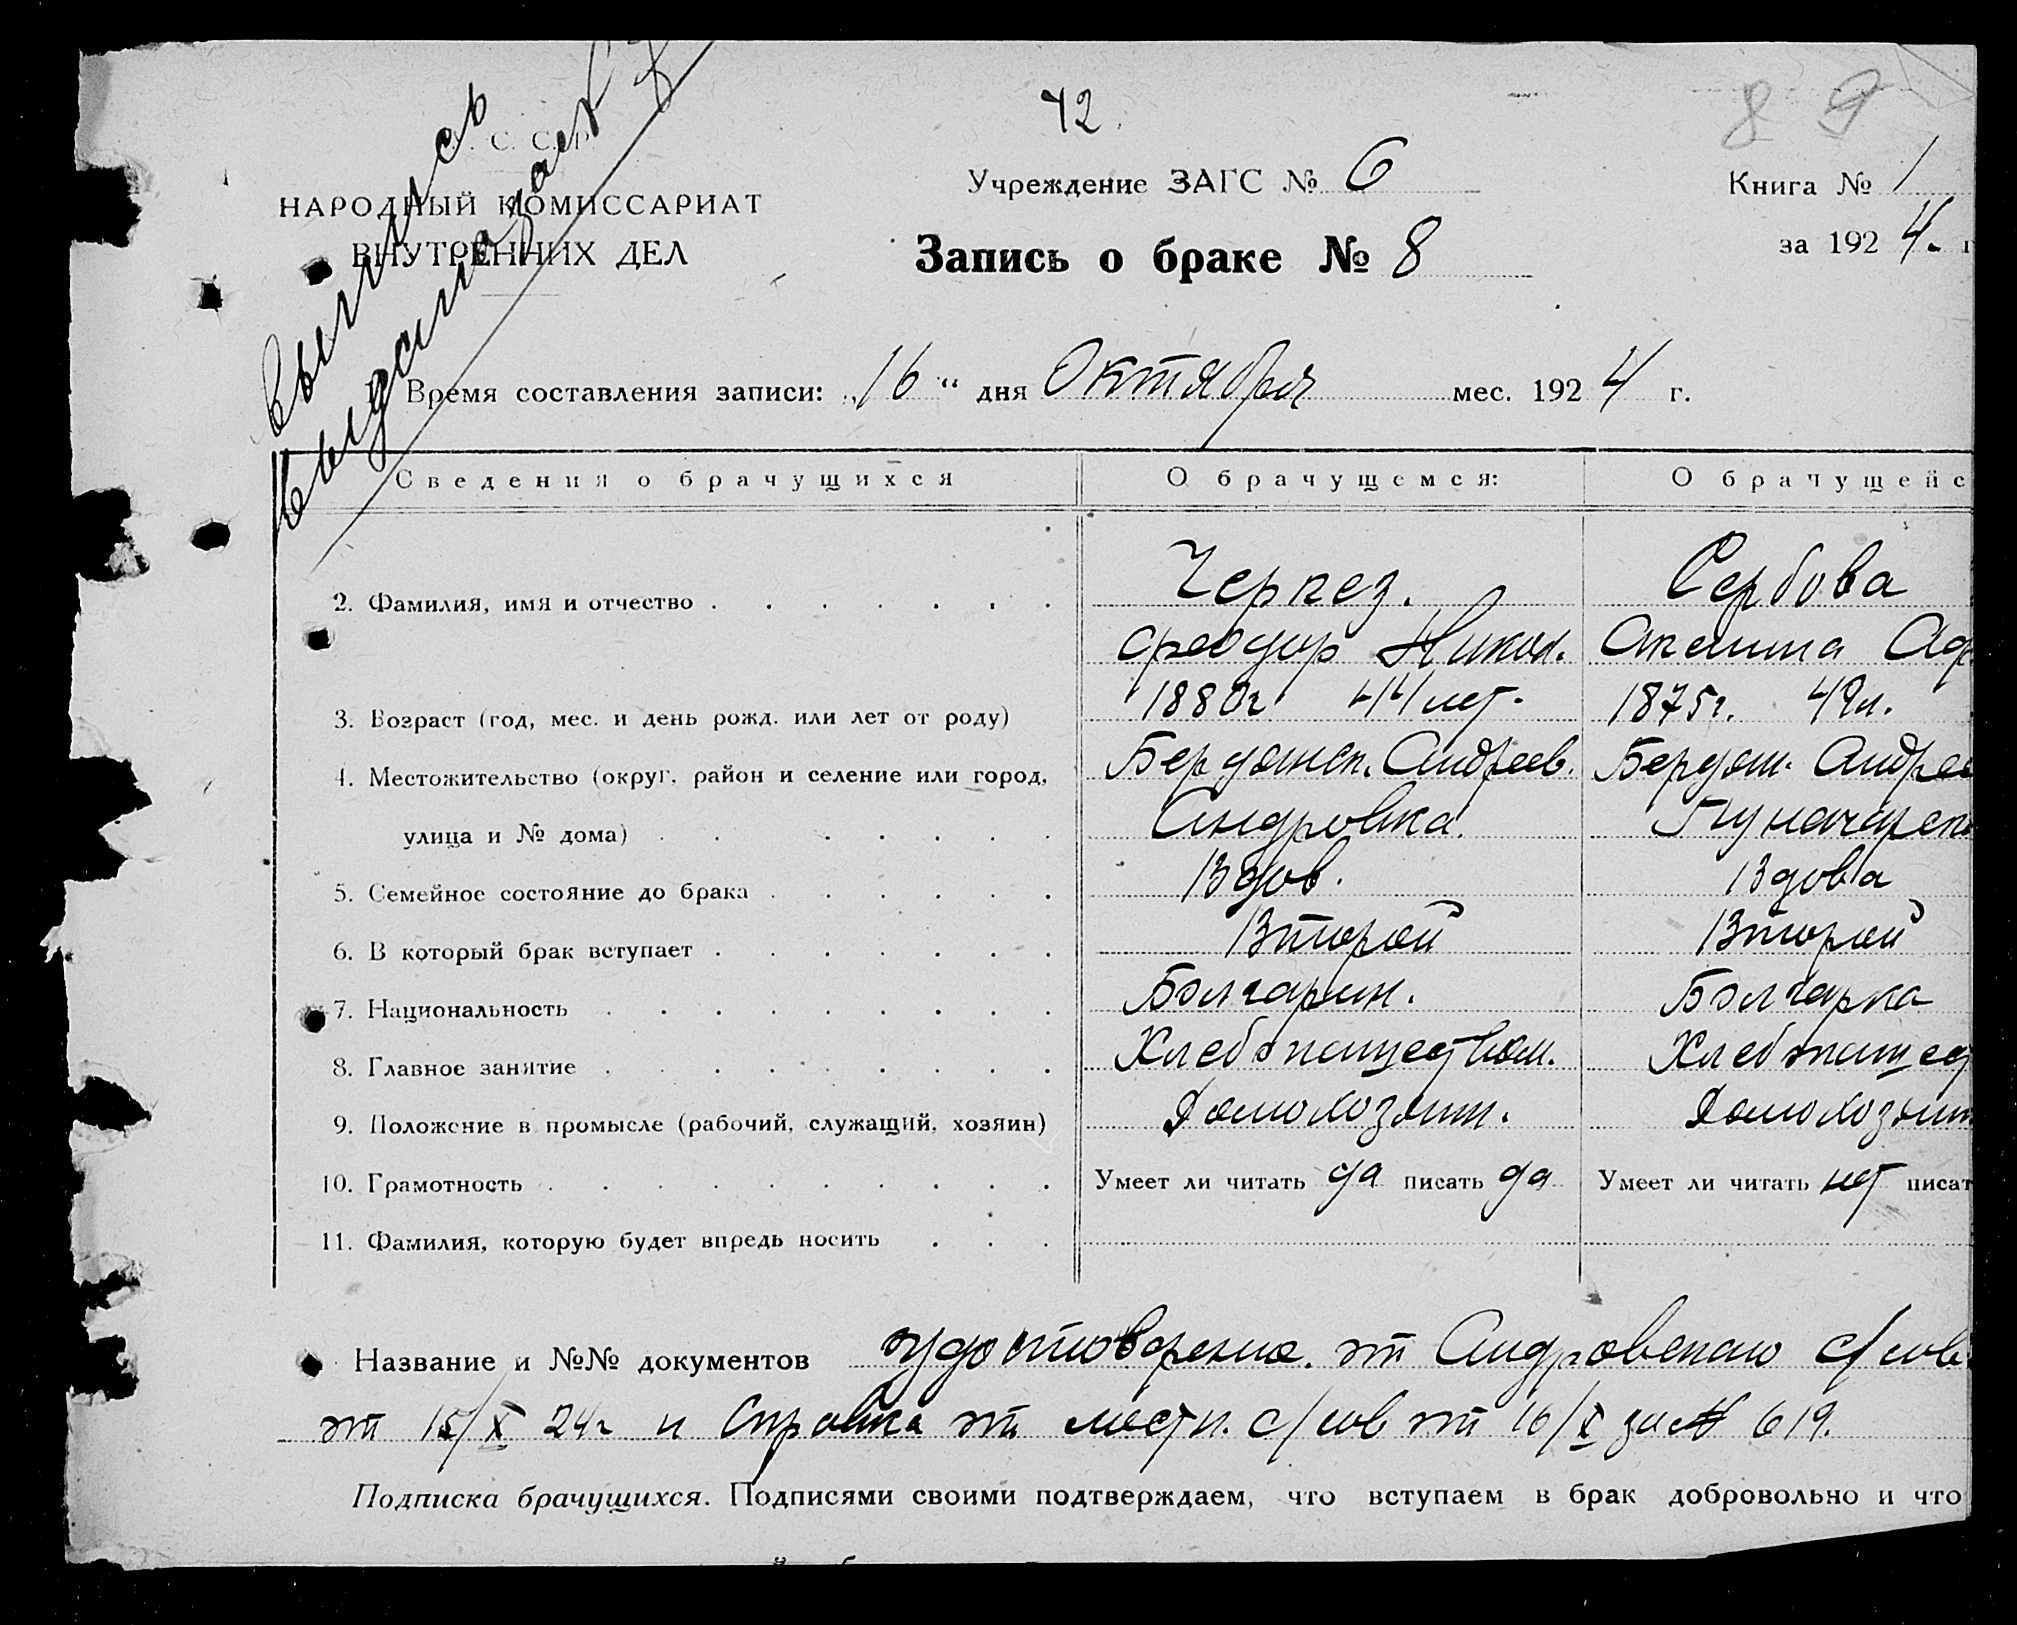 42.
8 9
С. С. С. Р.
НАРОДНЫЙ КОМИССАРИАТ
ВНУТРЕННИХ ДЕЛ
Выпись
выдана
Учреждение ЗАГС № 6
Книга № 1
Запись о браке № 8
за 1924. г
Время составления записи: „16“ дня Октября мес. 1924 г.
Сведения о брачущихся О брачущемся: О брачущейс
2. Фамилия, имя и отчество Черкез. Сербова
Феодор Никол. Акелина Аф
3. Возраст (год, мес. и день рожд. или лет от роду) 1880г 44 лет. 1875г. 49л.
4. Местожительство (округ, район и селение или город, Бердянск. Андреев. Бердян. Андрее
улица и № дома) Андровка. Луначарск
5. Семейное состояние до брака Вдов. Вдова
6. В который брак вступает Второй Второй
7. Национальность Болгарин. Болгарка
8. Главное занятие Хлебопашеством. Хлебопашест
9. Положение в промысле (рабочий, служащий, хозяин) Домохозяин. Домохозяин
10. Грамотность Умеет ли читать да писать да Умеет ли читать нет писат
11. Фамилия, которую будет впредь носить
Название и №№ документов удостоверение. от Андровского с/сов.
от 15/X 24г и Справка от местн. с/сов от 16/X за № 619.
Подписка брачущихся. Подписями своими подтверждаем, что вступаем в брак добровольно и что